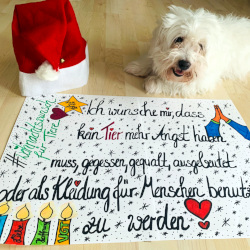 #Schnauzenwald
für Tiere
Ich wünsche mir, dass
kein Tier mehr Angst haben
muss, gegessen, gequält, ausgebeutet
oder als Kleidung für Menschen benutzt
zu werden
Liebe